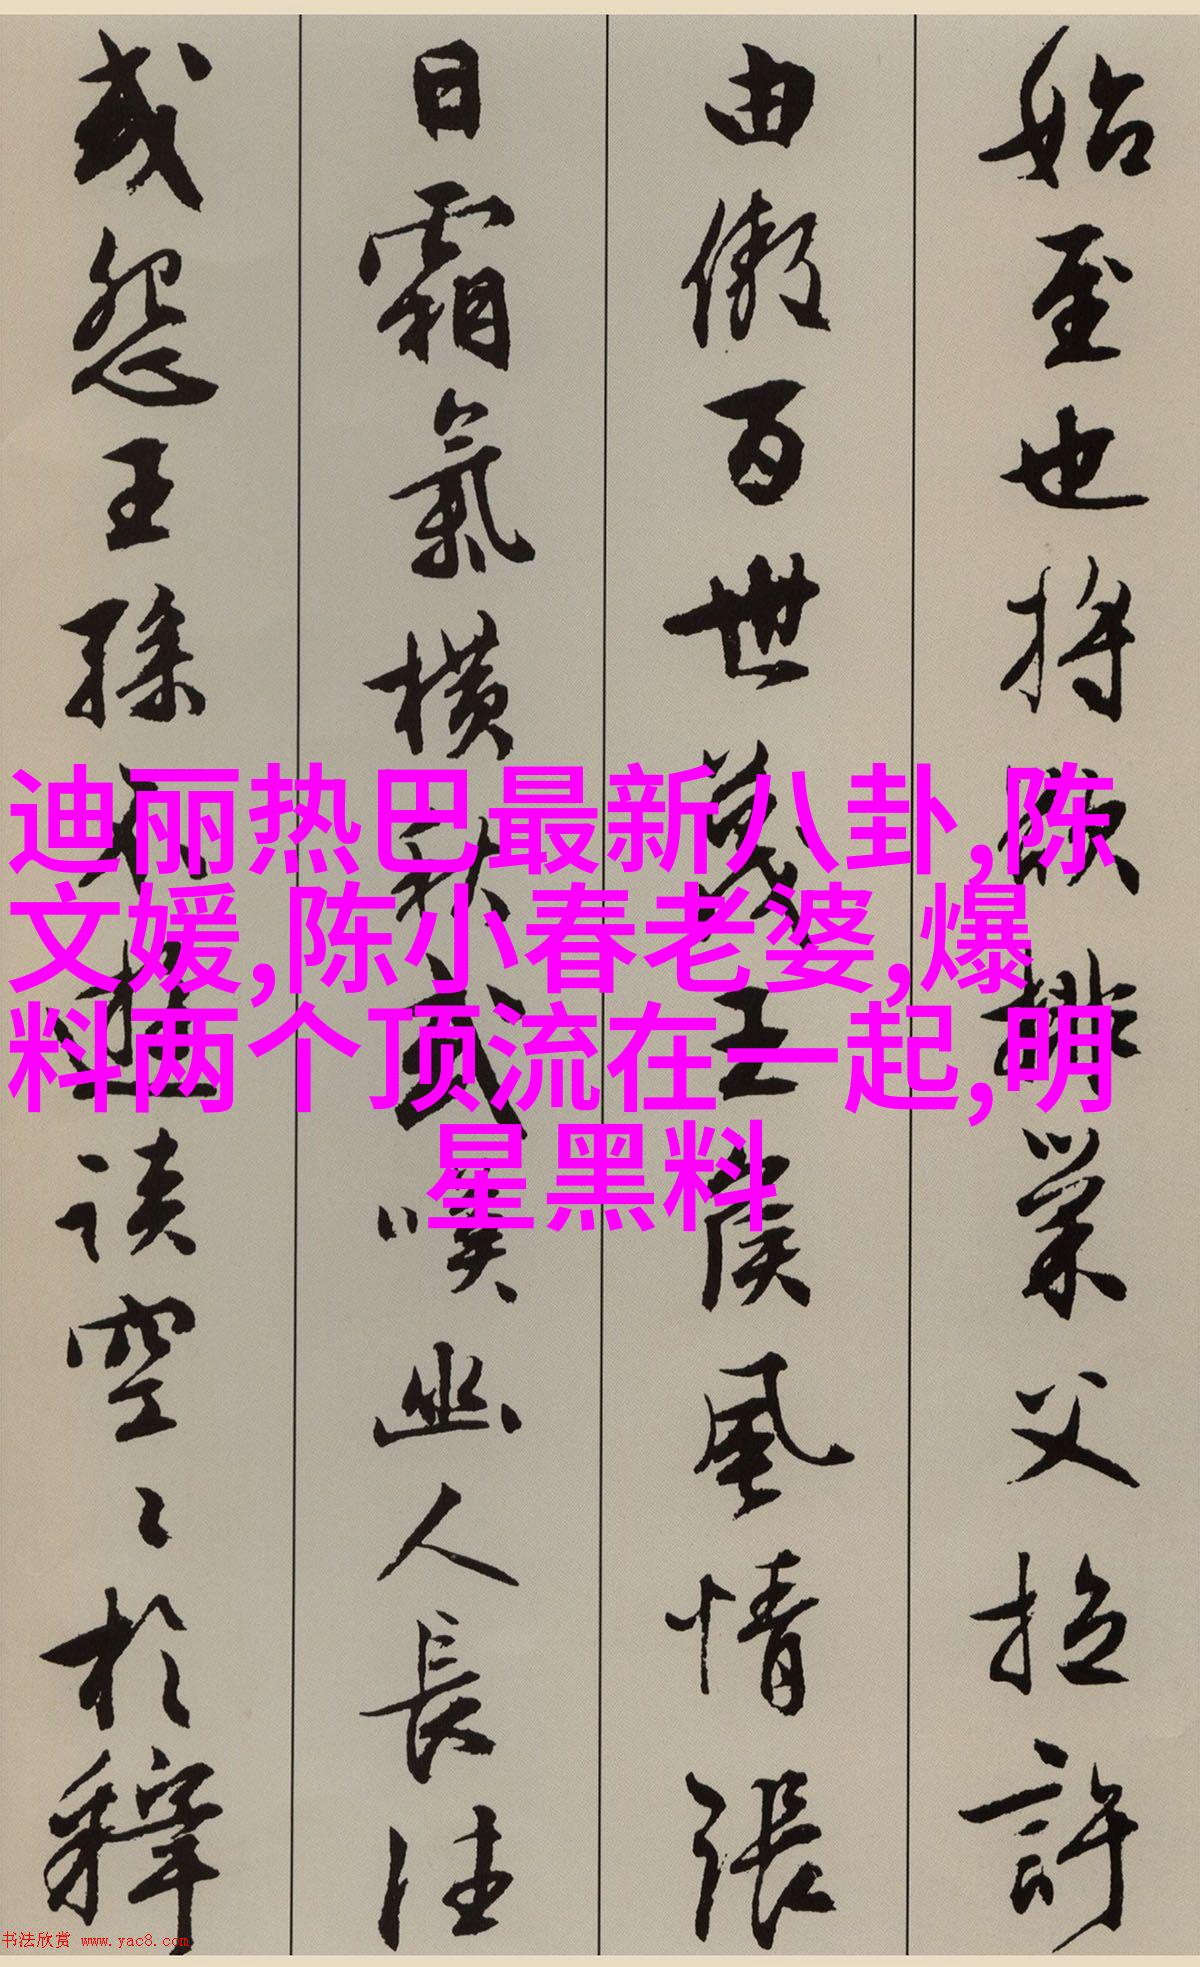 始至也将欲排巢父拉許
由傲百世蔑王侯風情張
日霜氣橫秋或嘆幽人長往
或怨王孫不遊談空〻於釋
迪丽热巴最新八卦,陈
文媛,陈小春老婆,爆
料两个顶流在一起,明
星黑料
书法欣赏 www.yac8.com